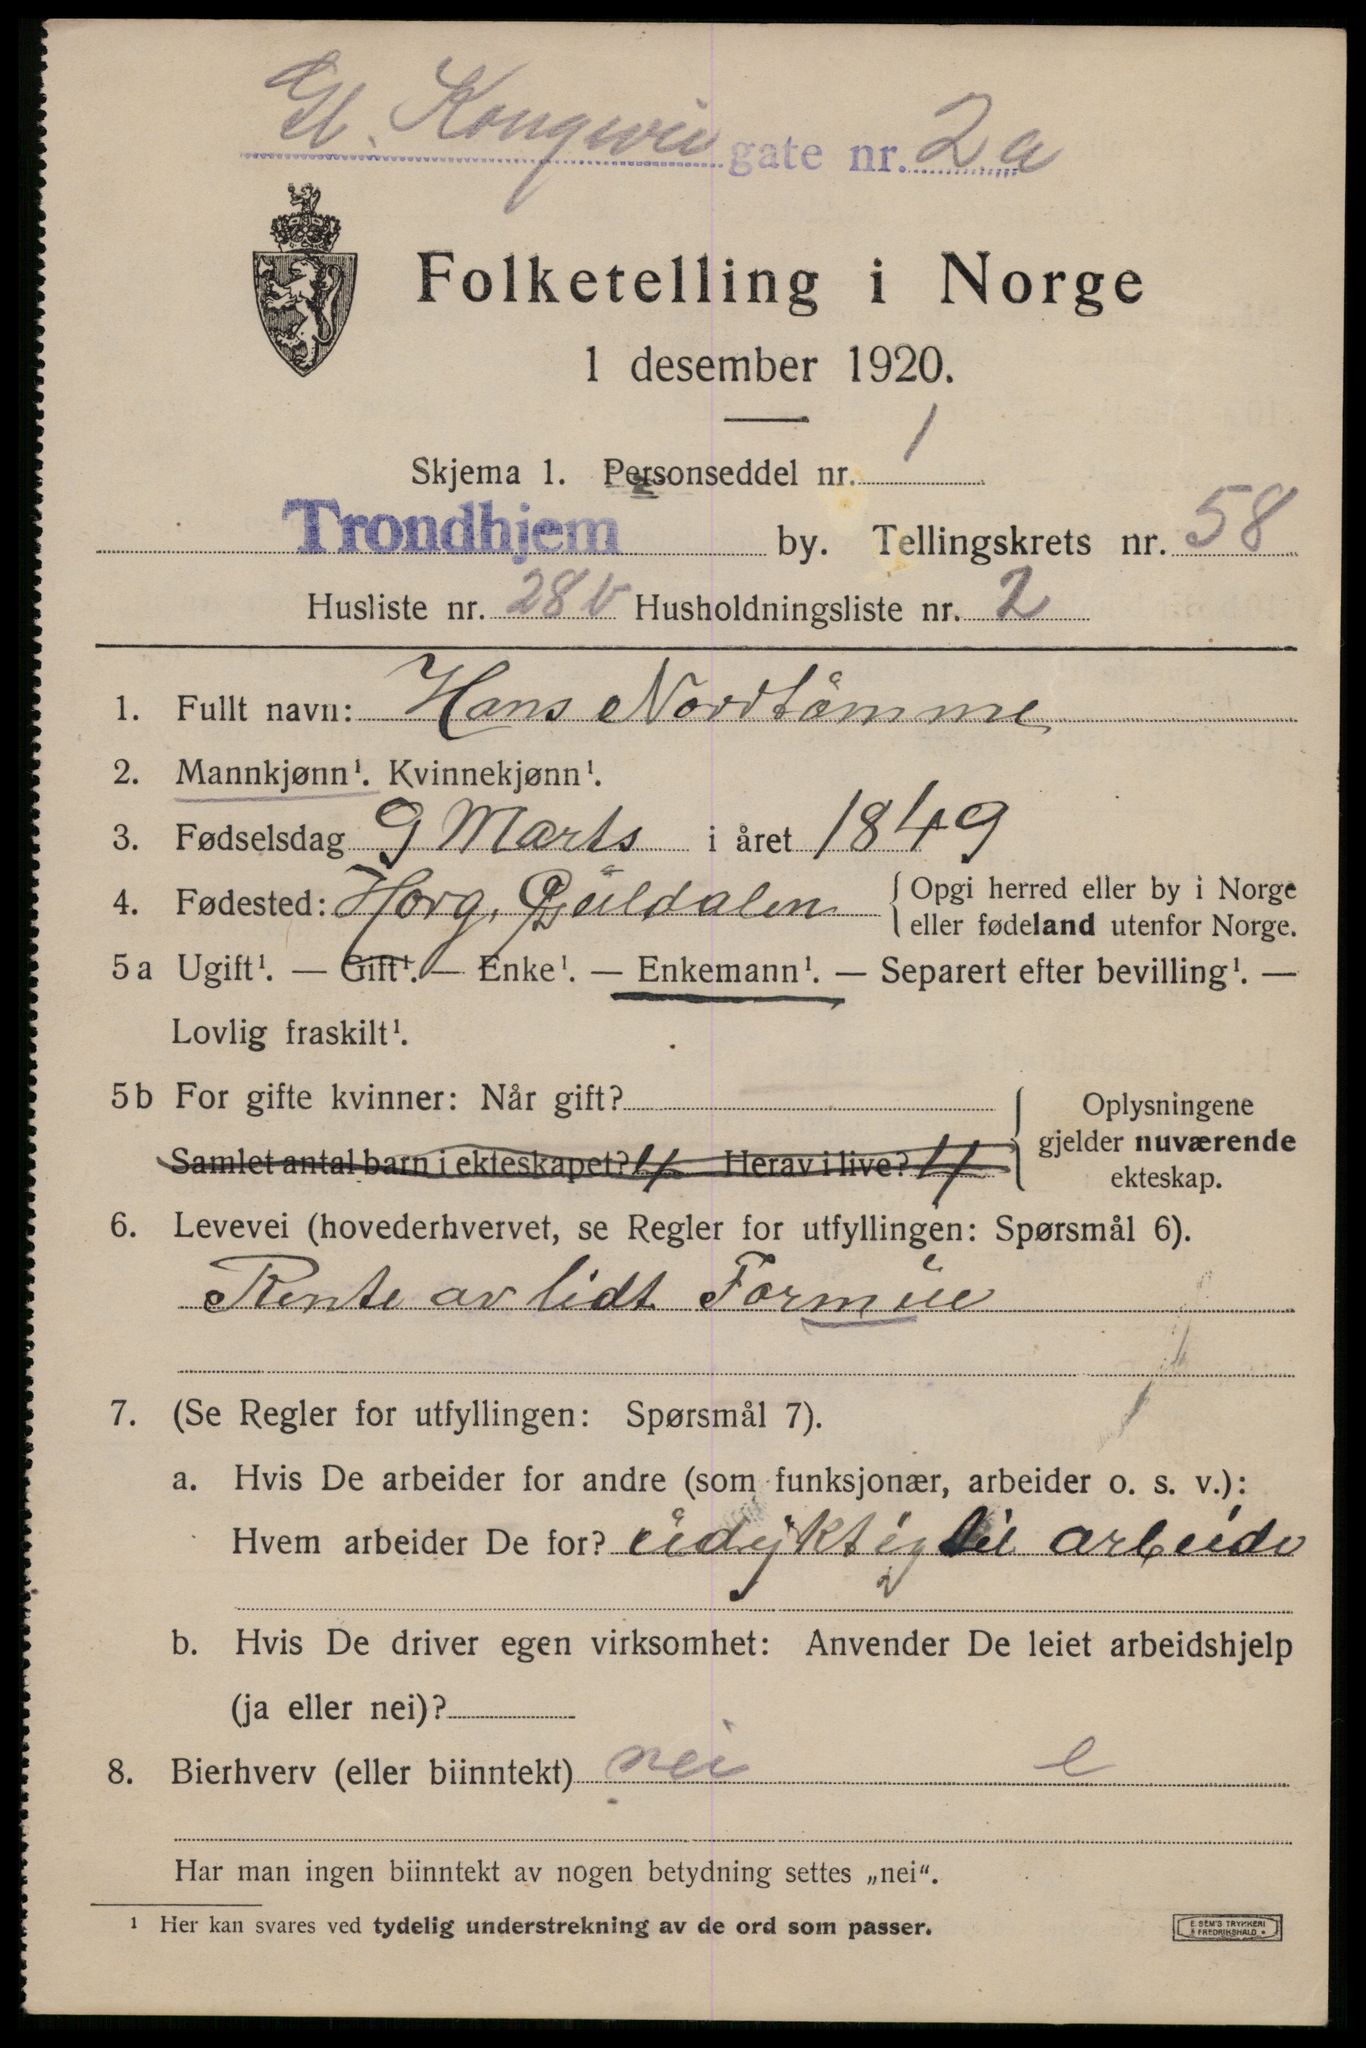 Gl. Kongevei gate nr. 2a
Folketelling i Norge
1 desember 1920.
Skjema 1. Personseddel nr. 1
Trondhjem by. Tellingskrets nr. 58
Husliste nr. 28 b Husholdningsliste nr. 2
1. Fullt navn: Hans Nordtømme
2. Mannkjønn¹. Kvinnekjønn¹.
3. Fødselsdag 9 Marts i året 1849
4. Fødested: Horg, Guldalen { Opgi herred eller by i Norge
eller fødeland utenfor Norge.
5a Ugift¹. — Gift¹. — Enke¹. — Enkemann¹. — Separert efter bevilling¹. —
Lovlig fraskilt¹.
5b For gifte kvinner: Når gift?
Samlet antal barn i ekteskapet? 4 Herav i live? 4
Oplysningene
gjelder nuværende
ekteskap.
6. Levevei (hovederhvervet, se Regler for utfyllingen: Spørsmål 6).
Rente av lidt Formue
7. (Se Regler for utfyllingen: Spørsmål 7).
a. Hvis De arbeider for andre (som funksjonær, arbeider o. s. v.):
Hvem arbeider De for? udyktig til arbeide
b. Hvis De driver egen virksomhet: Anvender De leiet arbeidshjelp
(ja eller nei)?
8. Bierhverv (eller biinntekt) nei e
Har man ingen biinntekt av nogen betydning settes „nei“.
¹ Her kan svares ved tydelig understrekning av de ord som passer.
E. SEM'S TRYKKERI
FREDRIKSHALD